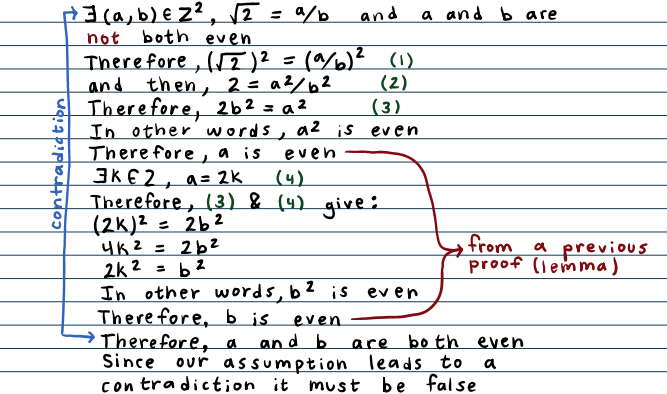 ∃(a,b)∈Z², √2 = a/b and a and b are
not both even
Therefore, (√2)² = (a/b)² (1)
and then, 2 = a²/b² (2)
Therefore, 2b² = a² (3)
In other words, a² is even
Therefore, a is even
∃K∈Z, a=2K (4)
Therefore, (3) & (4) give:
(2K)² = 2b²
4K² = 2b²
2K² = b²
In other words, b² is even
Therefore, b is even
Therefore, a and b are both even
Since our assumption leads to a
contradiction it must be false
contradiction
from a previous
proof (lemma)